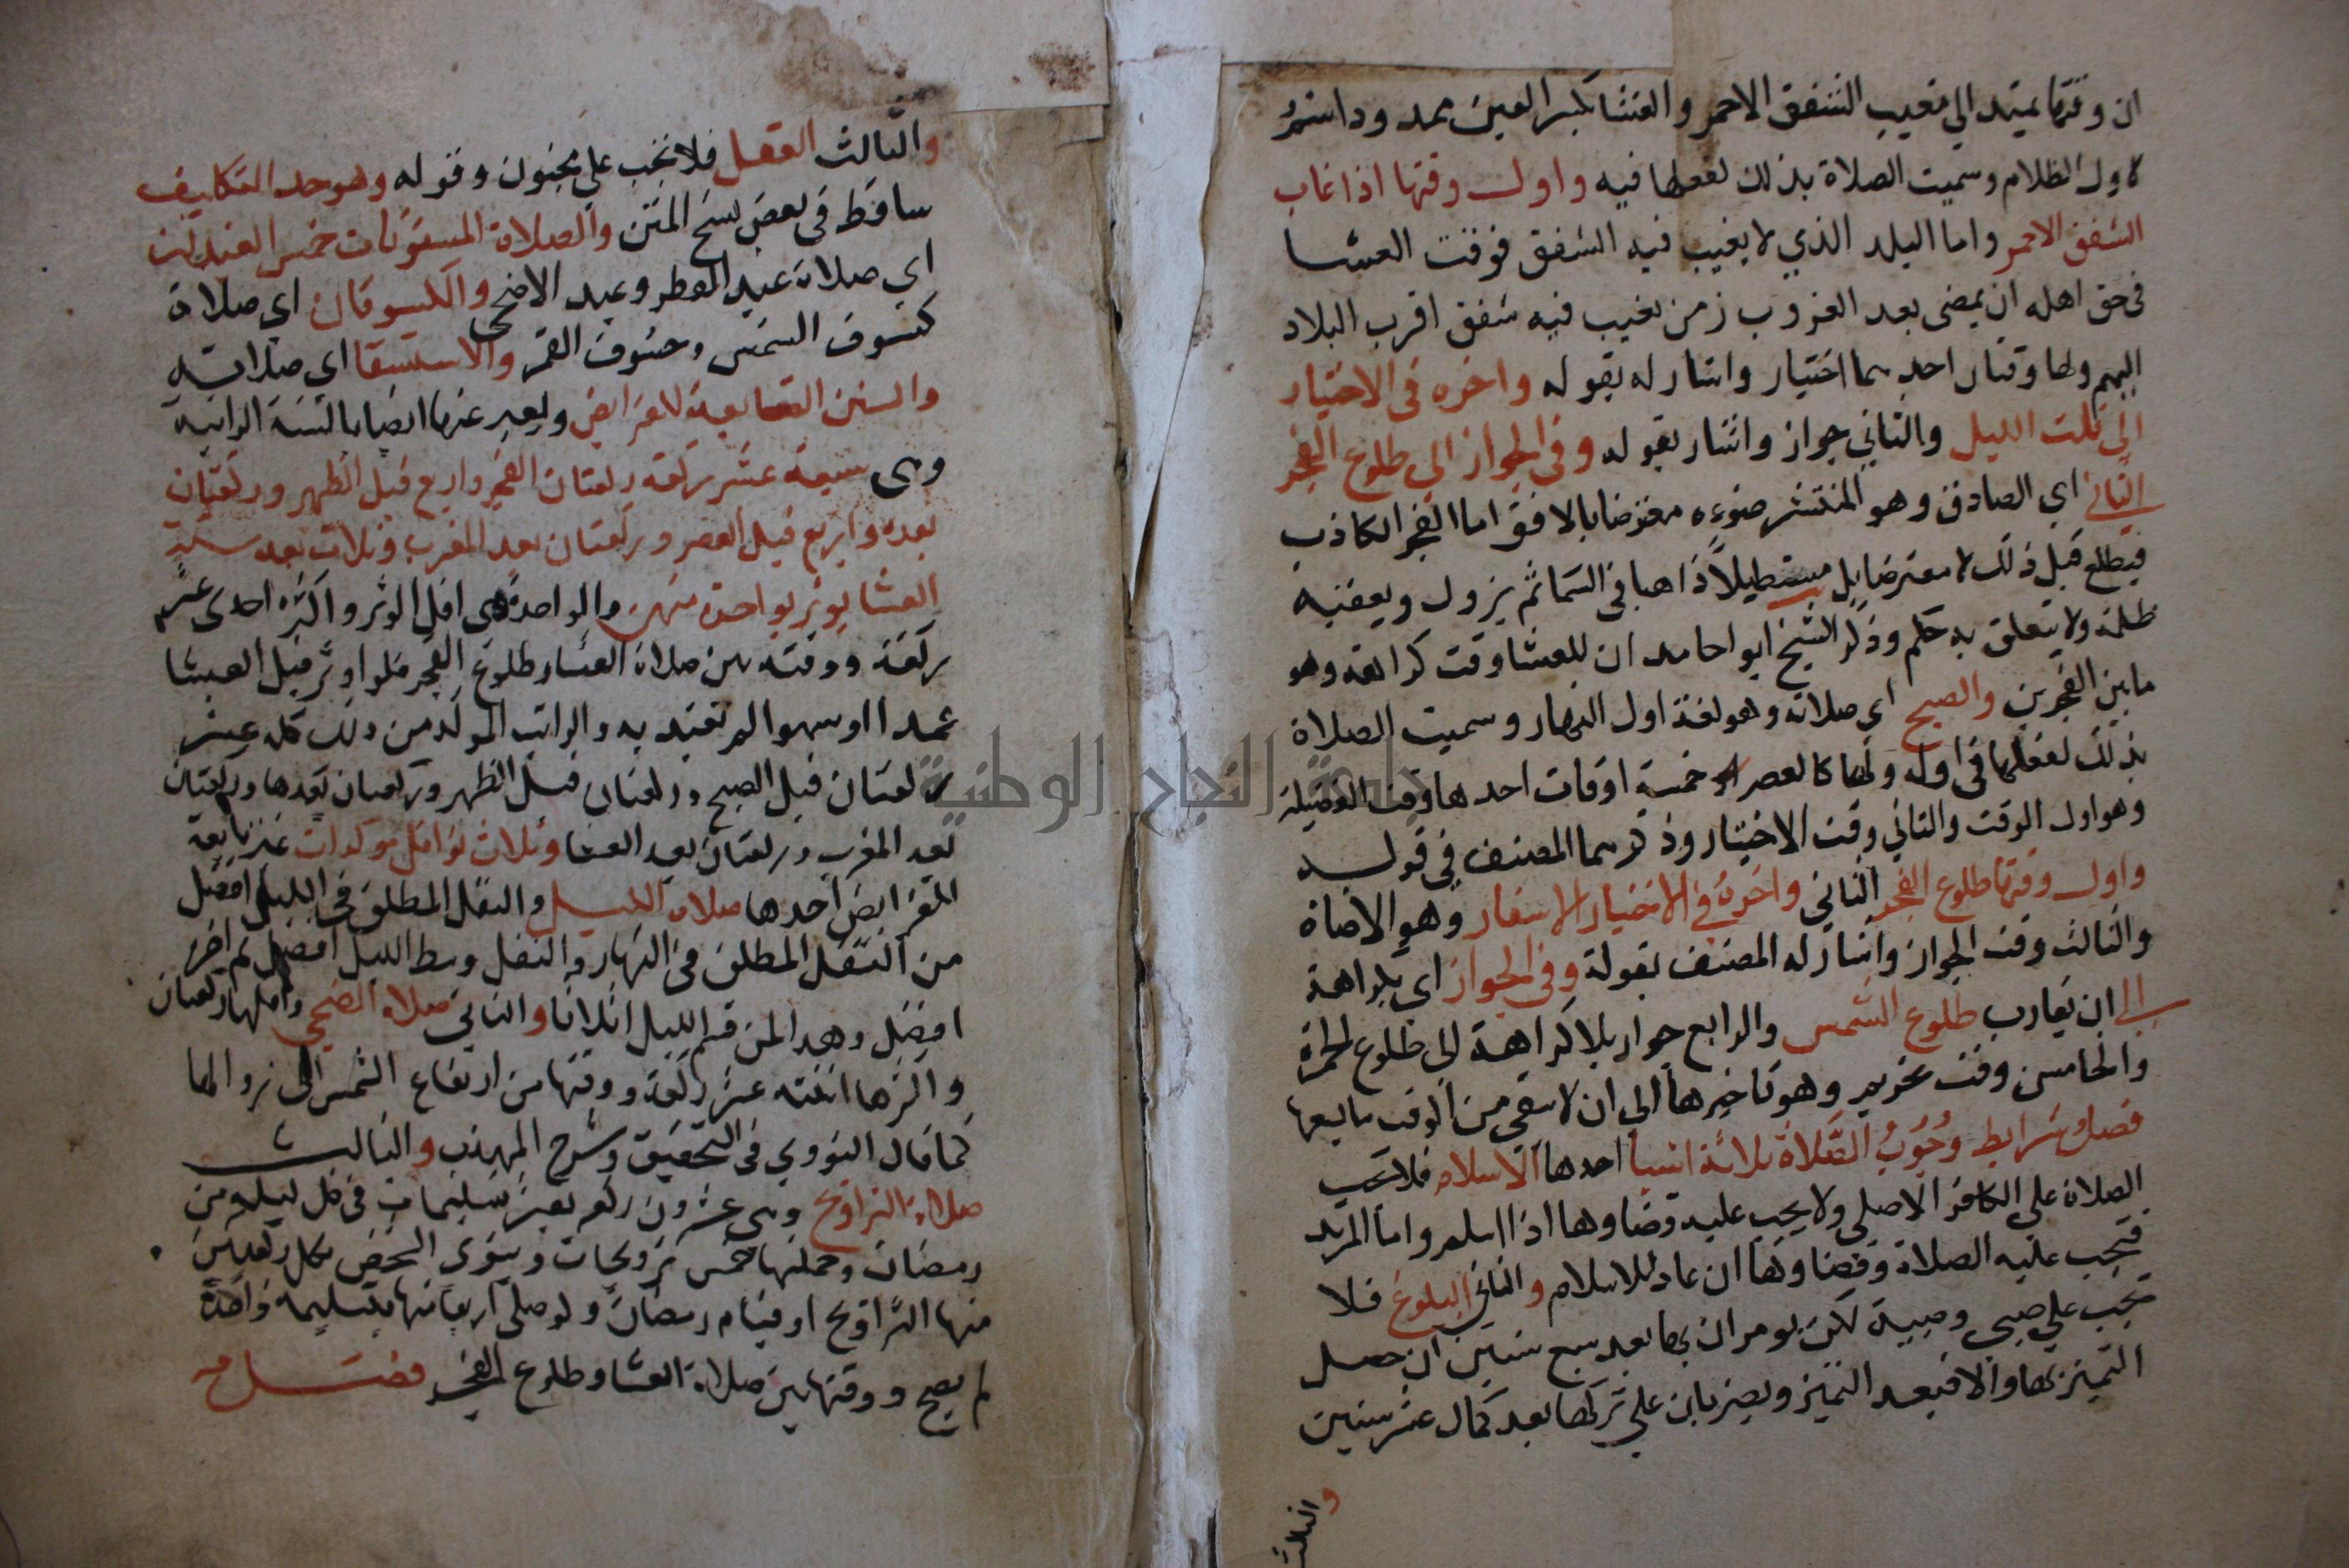 ان وقتها يمتد الي مغيب الشفق الاحمر والعشا بكسر العين ممدودا اسم
لاول الظلام وسميت الصلاة بذلك لفعلها فيه واول وقتها اذا غاب
الشفق الاحمر واما البلد الذي لا يغيب فيه الشفق فوقت العشا
في حق اهله ان يمضى بعد الغروب زمن يغيب فيه شفق اقرب البلاد
اليهم ولها وقتان احدهما اختيار واشار له بقوله واخره فى الاختيار
الى ثلث الليل والثاني جواز واشار بقوله وفى الجواز الى طلوع الفجر
الثاني اي الصادق وهو المنتشر ضوءه معترضا بالافق اما الفجر الكاذب
فيطلع قبل ذلك لا معترضا بل مستطيلا ذاهبا فى السما ثم يزول ويعقبه
ظلمة ولا يتعلق به حكم وذكر الشيخ ابو احامد ان للعشا وقت كراهة وهو
ما بين الفجرين والصبح اي صلاته وهو لغة اول النهار وسميت الصلاة
بذلك لفعلها فى اوله ولها كالعصر خمسة اوقات احدها وقت الفضيلة
وهو اول الوقت والثاني وقت الاختيار وذكرهما المصنف في قوله
واول وقتها طلوع الفجر الثاني واخره في الاختيار الاسفار وهو الاضاة
والثالث وقت الجواز واشار له المصنف بقوله وفى الجواز اى بكراهة
الي ان يقارب طلوع الشمس والرابع جواز بلا كراهة الى طلوع الحمرة
والخامس وقت تحريم وهو تاخيرها الي ان لا يبقى من الوقت ما يسعها
فصل وشرايط وجوب الصلاة ثلاثة اشيا احدها الاسلام فلا تجب
الصلاة علي الكافر الاصلي ولا يجب عليه قضاوها اذا اسلم واما المرتد
فتجب عليه الصلاة وقضاوها ان عاد للاسلام والثاني البلوغ فلا
تجب علي صبي وصبية لكن يومران بها بعد سبع سنين ان حصل
التميز بها والا فبعد التميز ويضربان علي تركها بعد كمال عشر سنين
والثالث
والثالث العقل فلا تجب علي مجنون وقوله وهو حد التكليف
ساقط فى بعض نسخ المتن والصلاة المسنونات خمس العيدان
اي صلاة عيد الفطر وعيد الاضحى والكسوفان اي صلاة
كسوف الشمس وخسوف القمر والاستسقا اي صلاته
والسنن التابعة للفرايض ويعبر عنها ايضا بالسنة الراتبة
وهى سبعة عشر ركعة ركعتان الفجر واربع قبل الظهر وركعتان
بعده واربع قبل العصر وركعتان بعد المغرب وثلاث بعد سنة
العشا يوتر بواحدة منهن والواحدة هى اقل الوتر واكثره احدى عشر
ركعة ووقته بين صلاة العشا وطلوع الفجر فلو اوتر قبل العشا
عمدا او سهوا لم يعتد به والراتب الموكد من ذلك كله عشر
ركعتان قبل الصبح وركعتان قبل الظهر وركعتان بعدها وركعتان
بعد المغرب وركعتان بعد العشا وثلاث نوافل موكدات غير تابعة
للفرايض احدها صلاة الليل والنفل المطلق فى الليل افضل
من النفل المطلق فى النهار والنفل وسط الليل افضل ثم اخره
افضل وهذا لمن قسم الليل اثلاثا والثاني صلاة الضحى واقلها ركعتان
واكثرها اثنته عشر ركعة ووقتها من ارتفاع الشمس الى زوالها
كما قال النووي فى التحقيق وشرح المهذب والثالث
صلاة التراويح وهى عشرون ركعة بعشر تسليمات فى كل ليلة من
رمضان وجملتها خمس ترويحات وينوى الشخص بكل ركعتين
منها التراويح او قيام رمضان ولو صلى اربعا منها بتسليمة واحدة
لم يصح ووقتها بين صلاة العشا وطلوع الفجر فصل
جامعة النجاح الوطنية